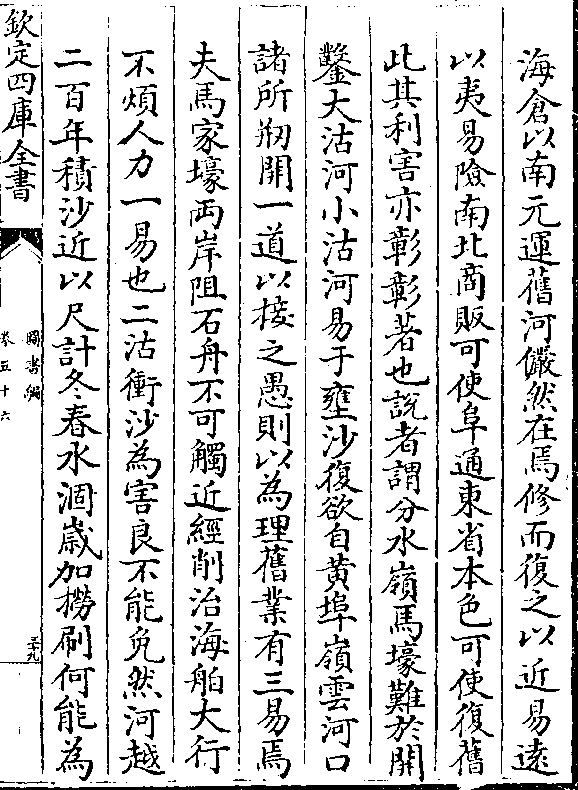 海倉以南元運舊河儼然在焉修而復之以近易遠
以夷易險南北商販可使阜通東省本色可使復舊
此其利害亦彰彰著也說者謂分水嶺馬壕難於開
鑿大沽河小沽河易于壅沙復欲自黄埠嶺雲河口
諸所剏開一道以接之愚則以為理舊業有三易焉
夫馬家壕兩岸阻石舟不可觸近經削治海舶大行
不煩人力一易也二沽衝沙為害良不能免然河越
二百年積沙近以尺計冬春水涸歲加撈刷何能為
欽定四庫全書
圖書編
卷五十六
三十九